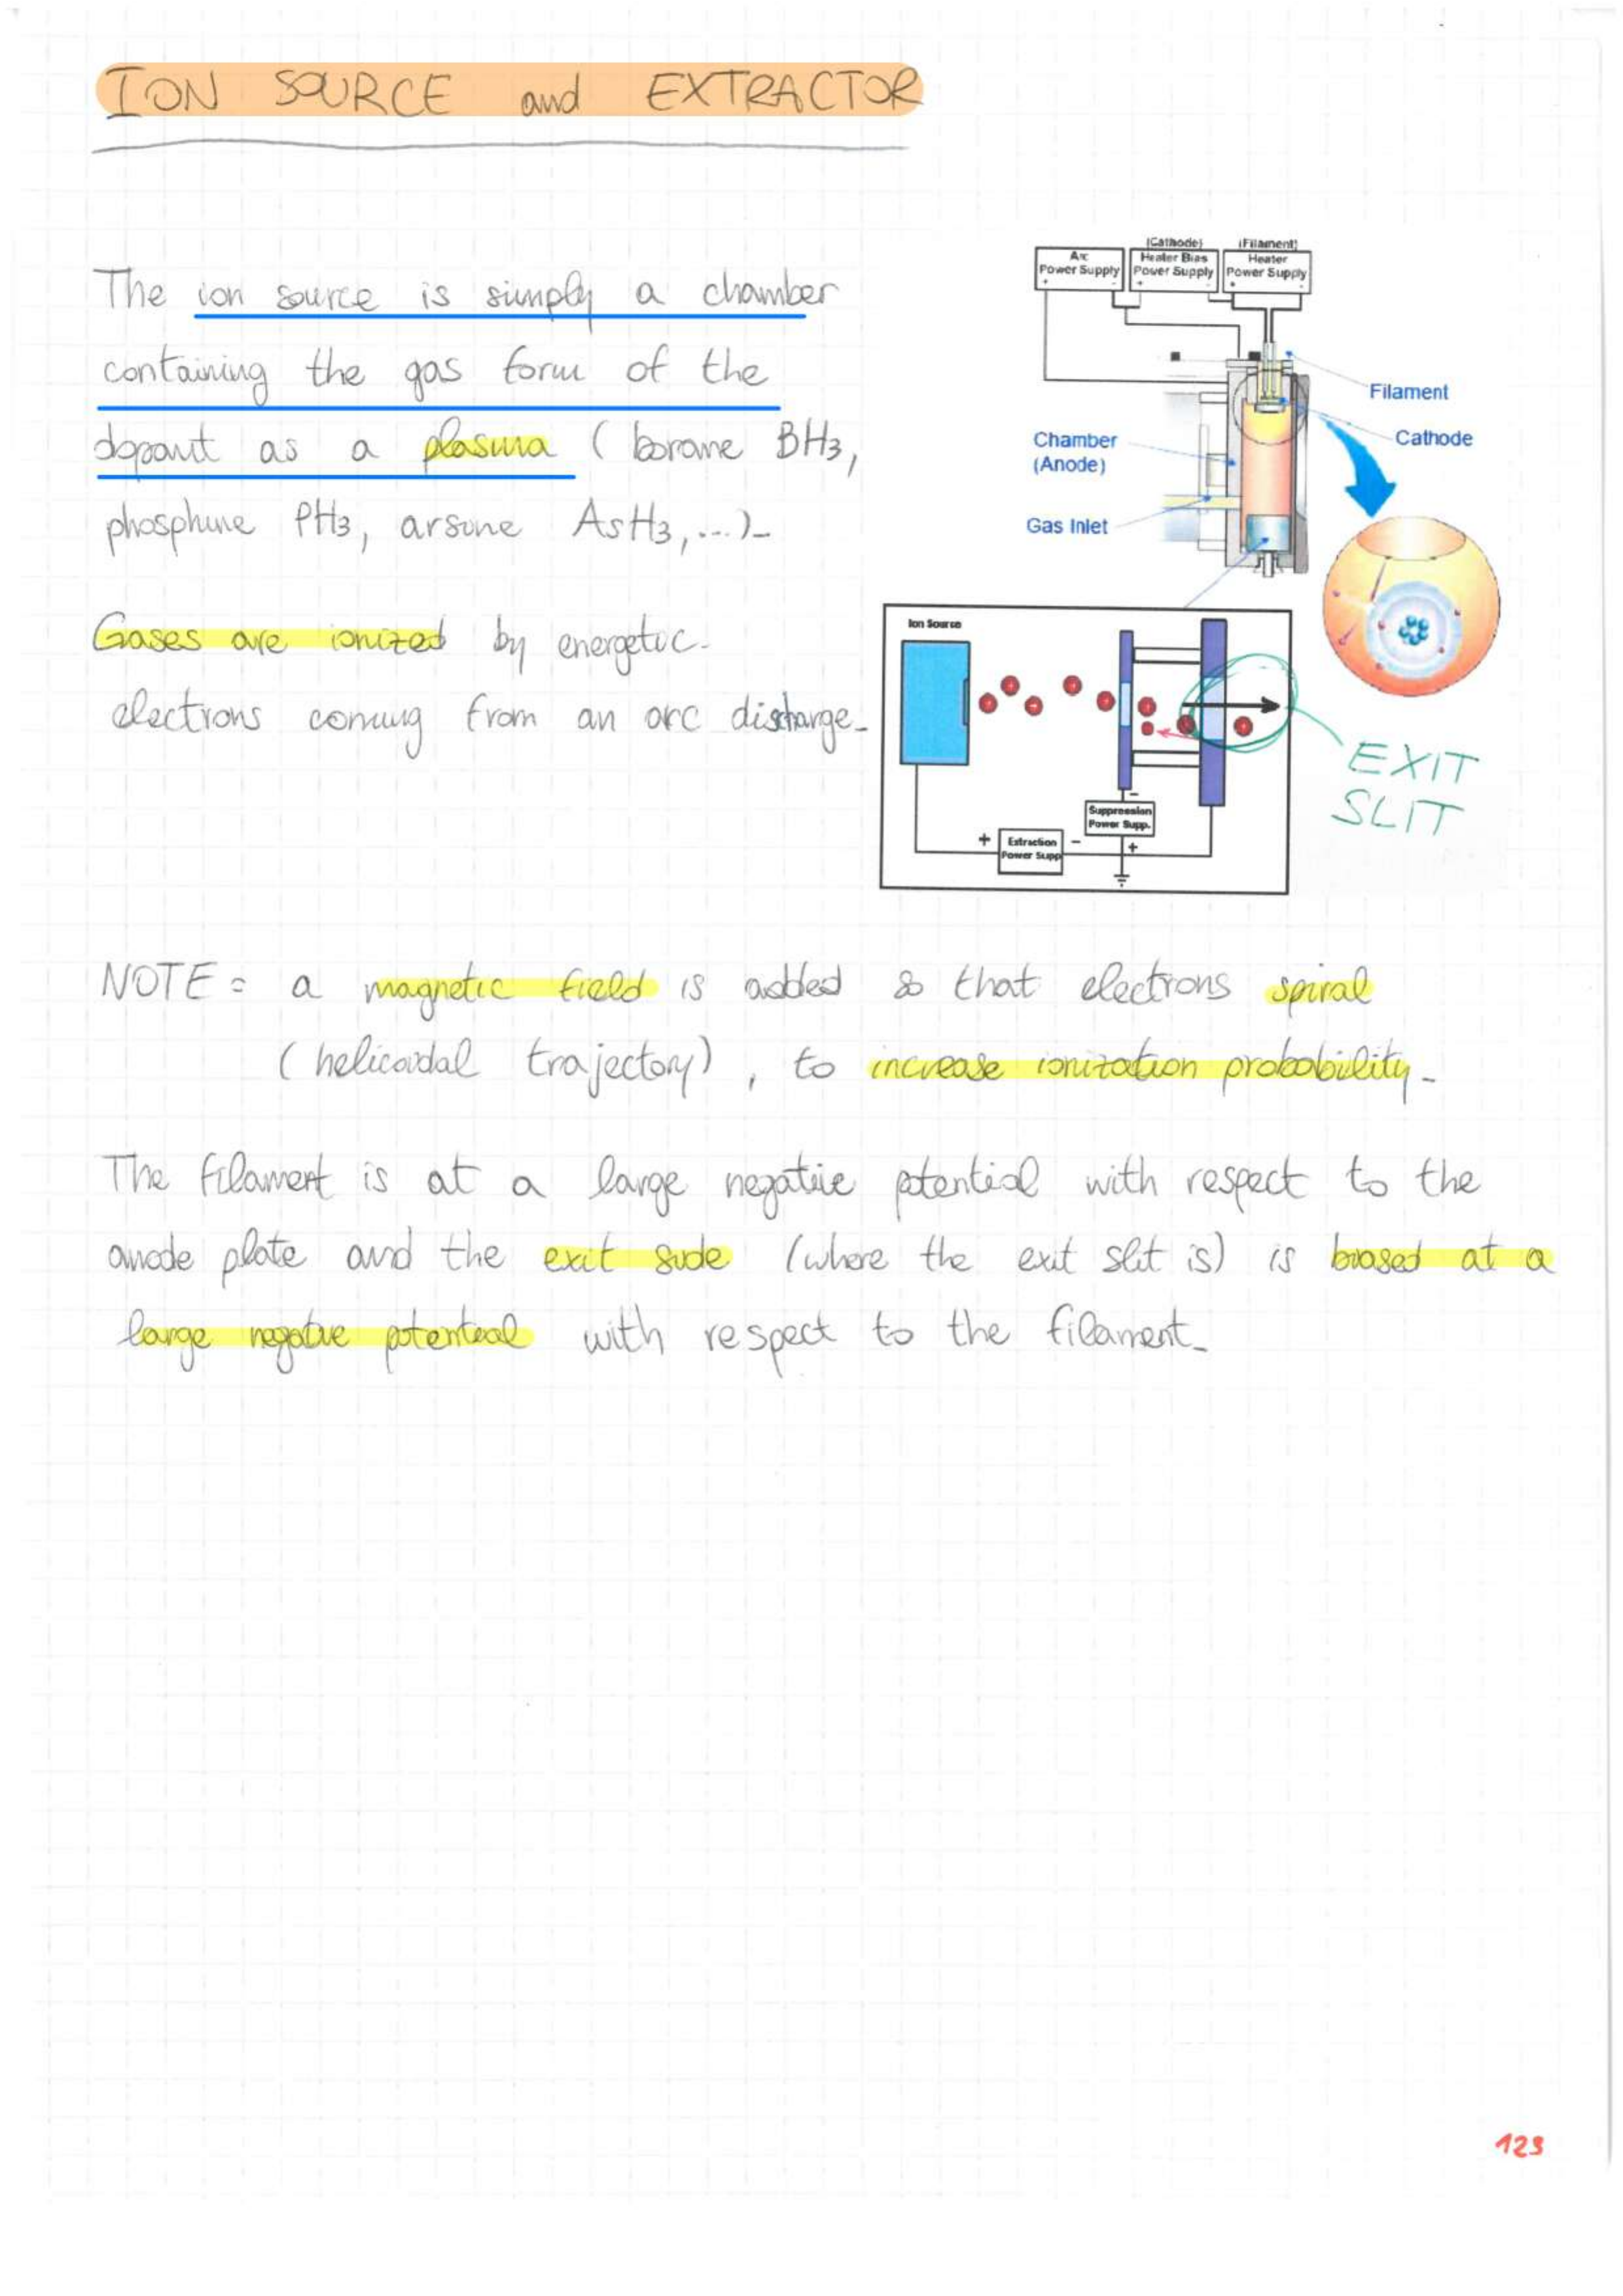 ION SOURCE and EXTRACTOR
The ion source is simply a chamber
containing the gas form of the
dopant as a plasma (borane BH3,
phosphine PH3, arsine AsH3,...)-
Gases are ionized by energetic-
electrons coming from an arc discharge-
(Cathode) (Filament)
Arc Heater Bias Heater
Power Supply Power Supply Power Supply
+ - + - + -
Filament
Cathode
Chamber
(Anode)
Gas Inlet
Ion Source
EXIT
SLIT
-
Suppression
Power Supp.
+ Extraction - +
Power Supp
NOTE = a magnetic field is added so that electrons spiral
(helicoidal trajectory), to increase ionization probability-
The filament is at a large negative potential with respect to the
anode plate and the exit side (where the exit slit is) is biased at a
large negative potential with respect to the filament-
123